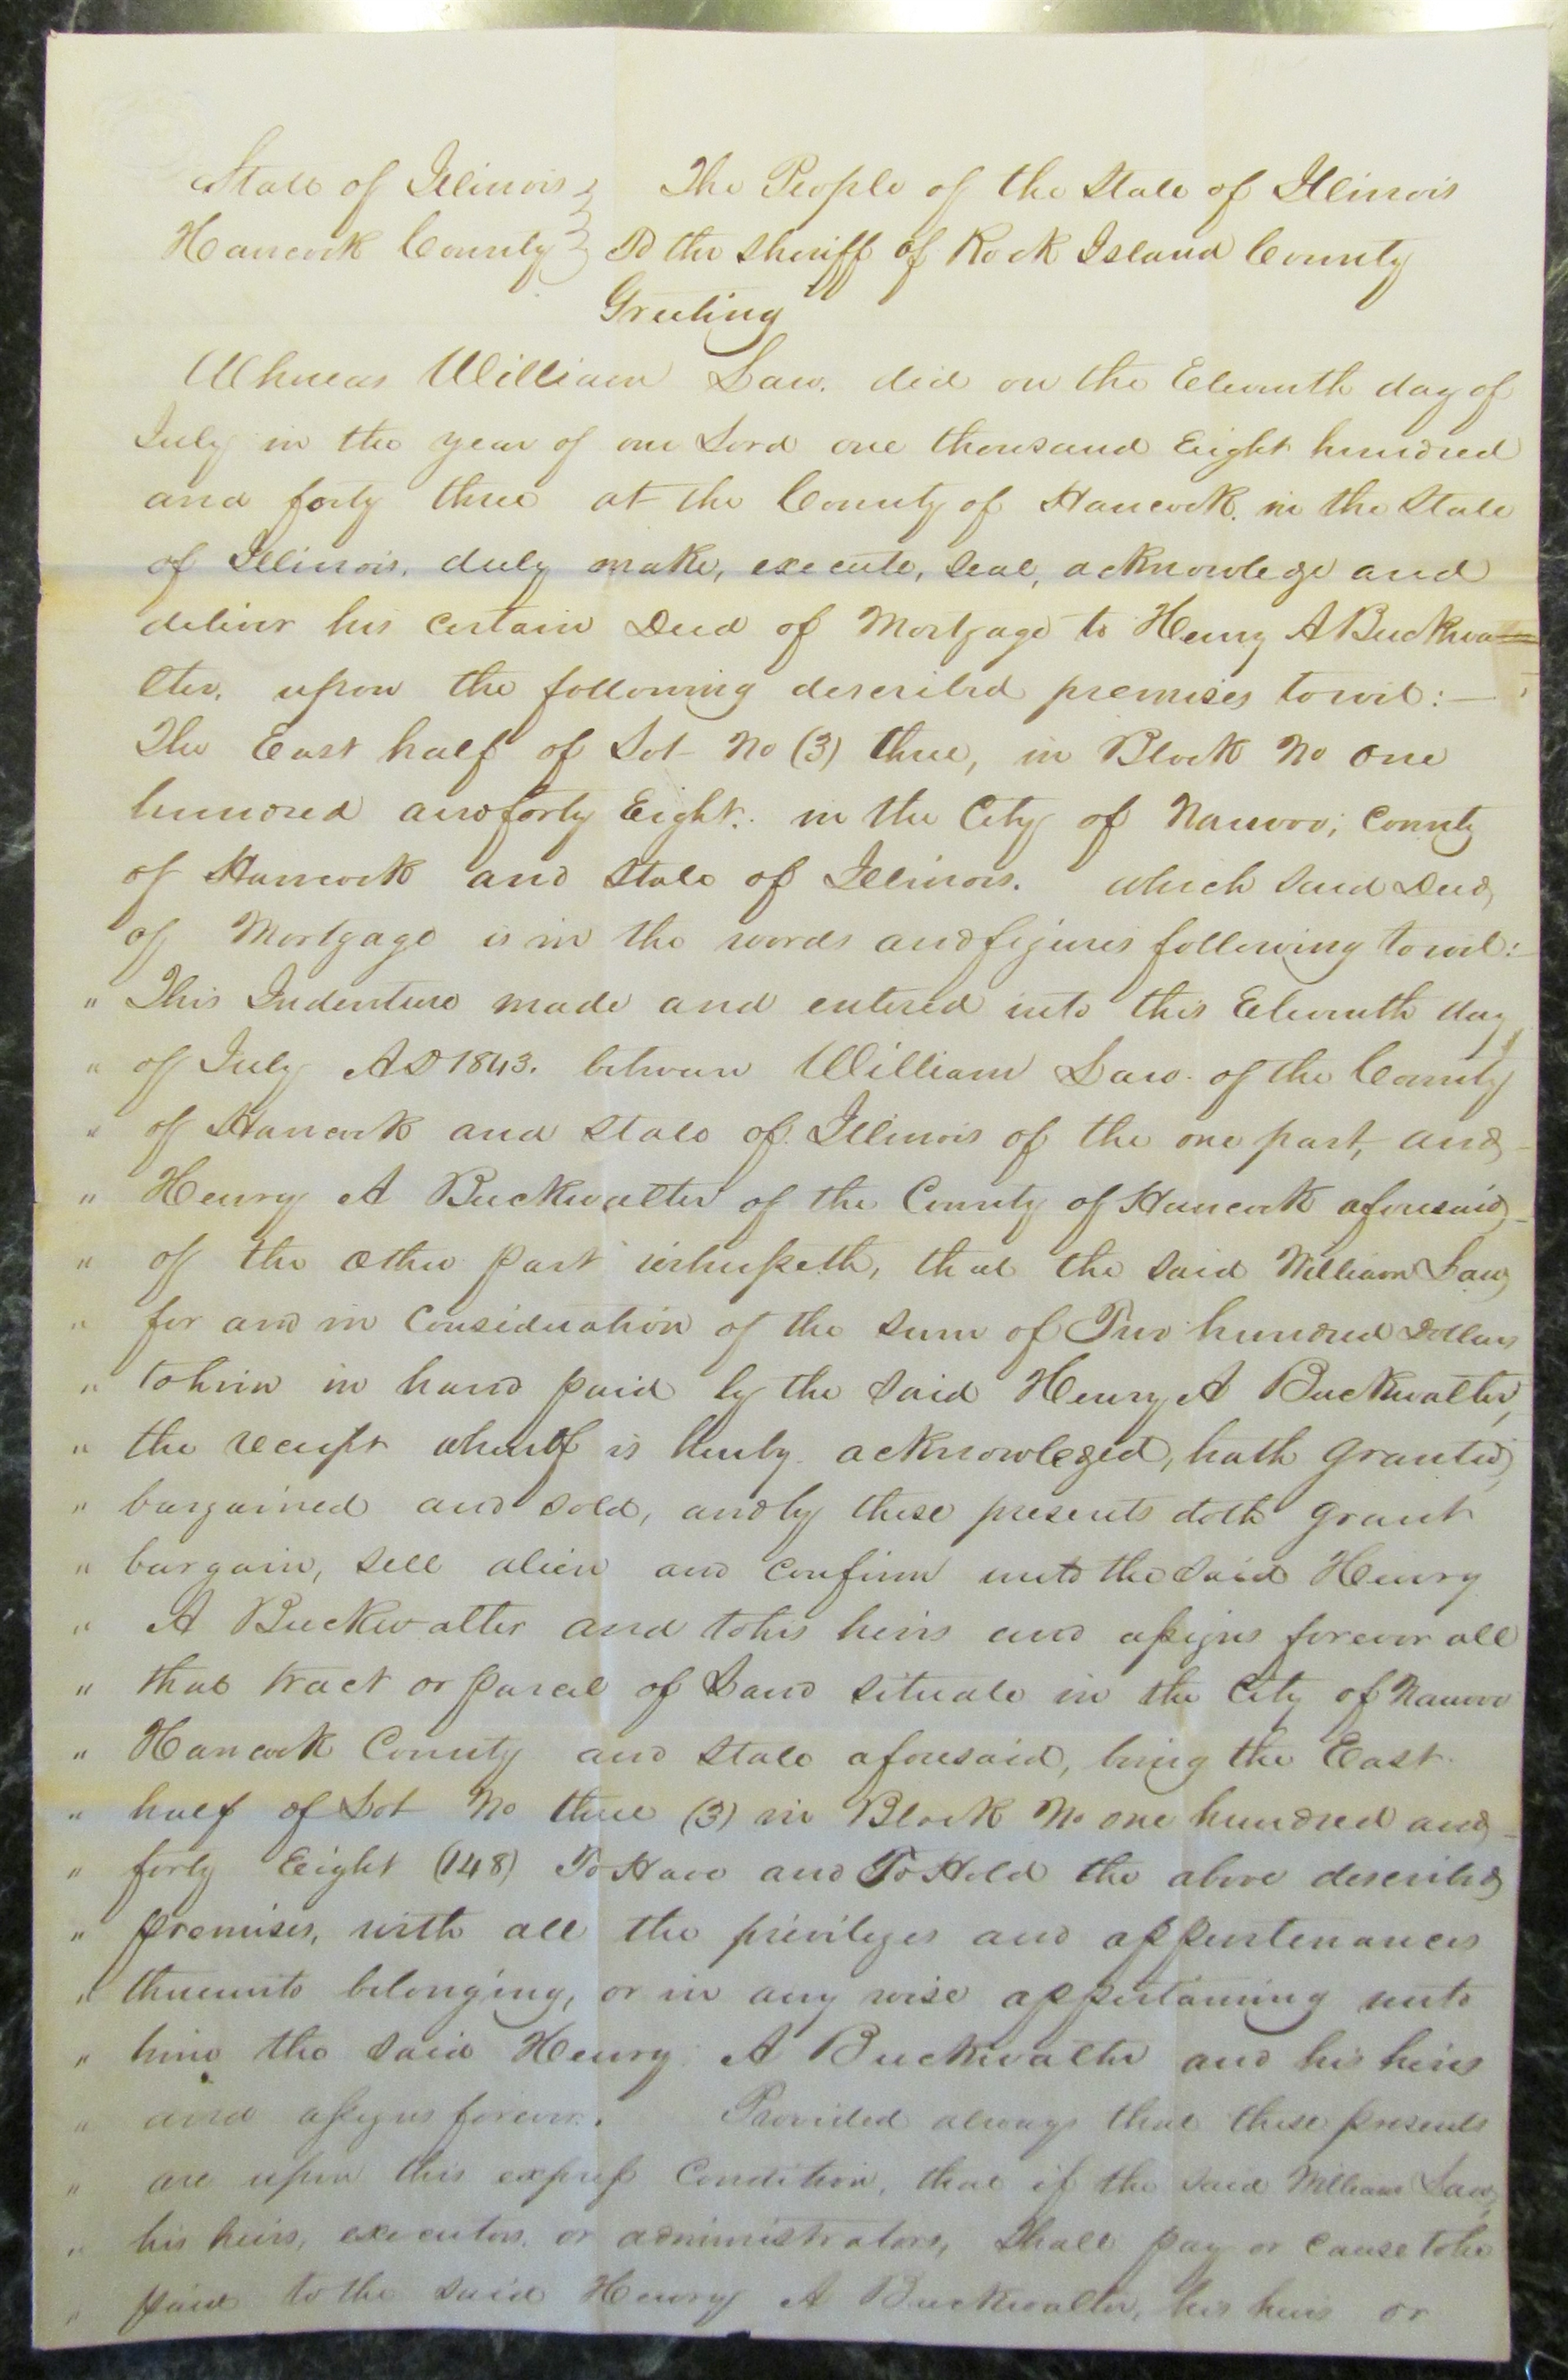 State of Illinois } The People of the State of Illinois
Hancock County } To the Sheriff of Rock Island County
Greeting
Whereas William Law. did on the Eleventh day of
July in the year of our Lord one thousand Eight hundred
and forty three at the County of Hancock. in the State
of Illinois, duly make, execute, seal, acknowledge and
deliver his certain Deed of Mortgage to Henry A Buckwa=
lter. upon the following described premises towit:—
The East half of Lot No (3) three, in Block No one
hundred and forty Eight. in the City of Nauvoo; County
of Hancock and State of Illinois. which said Deed
of Mortgage is in the words and figures following towit:
" This Indenture made and entered into this Eleventh day
" of July AD 1843. between William Law. of the County
" of Hancock and State of Illinois of the one part, and
" Henry A Buckwalter of the County of Hancock aforesaid
" of the other part witnesseth, that the said William Law
" for and in Consideration of the sum of Two hundred Dollars
" to him in hand paid by the said Henry A Buckwalter,
" the receipt whereof is hereby acknowledged, hath granted,
" bargained and sold, and by these presents doth grant
" bargain, sell alien and confirm unto the said Henry
" A Buckwalter and to his heirs and assigns forever all
" that tract or parcel of Land situate in the City of Nauvoo
" Hancock County and State aforesaid, being the East
" half of Lot No three (3) in Block No one hundred and
" forty Eight (148) To Have and To Hold the above described
" premises, with all the privileges and appurtenances
" thereunto belonging, or in any wise appertaining unto
" him the said Henry A Buckwalter and his heirs
" and assigns forever. Provided always that these presents
" are upon this express Condition, that if the said William Law,
" his heirs, executors, or administrators, shall pay or cause to be
" paid to the said Henry A Buckwalter, his heirs or